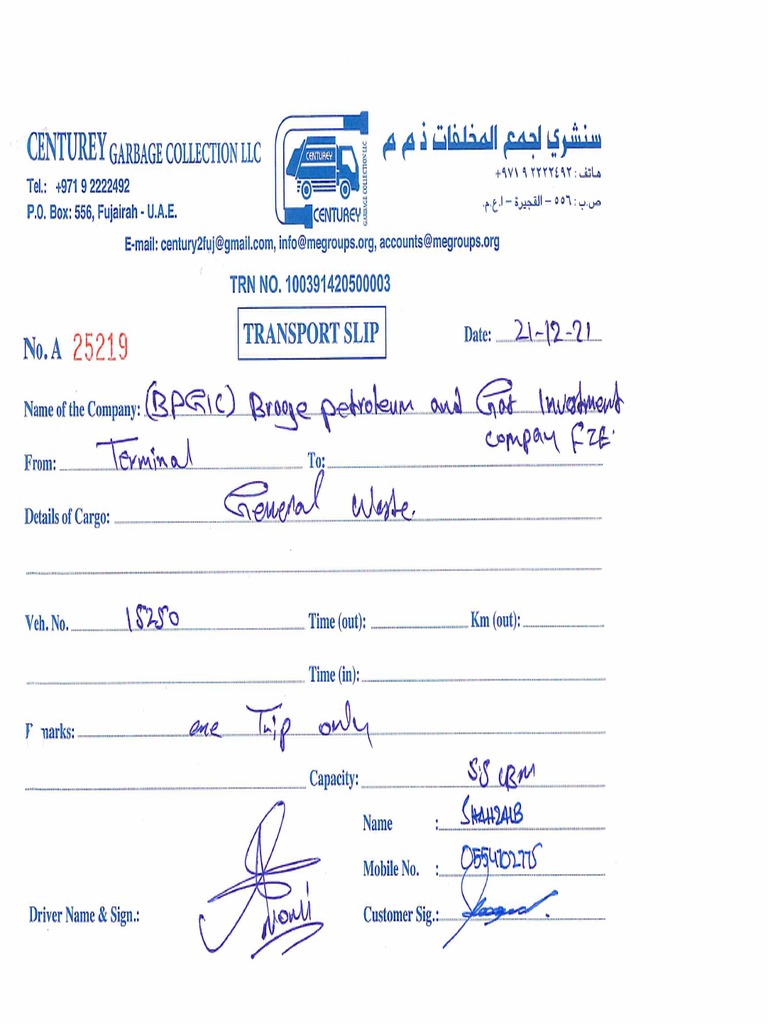 CENTUREY GARBAGE COLLECTION LLC
سنشري لجمع المخلفات ذ م م
Tel.: +971 9 2222492
هاتف : ٢٢٢٢٤٩٢ ٩ ٩٧١+
P.O. Box: 556, Fujairah - U.A.E.
ص.ب : ٥٥٦ – الفجيرة – ا.ع.م.
CENTUREY
CENTUREY
GARBAGE COLLECTION LLC
E-mail: century2fuj@gmail.com, info@megroups.org, accounts@megroups.org
TRN NO. 100391420500003
No. A 25219
TRANSPORT SLIP
Date: 21-12-21
Name of the Company: (BPGIC) Brooge petroleum and Gas Investment
compay FZE.
From: Terminal To:
Details of Cargo: General Waste.
Veh. No. 15250 Time (out): Km (out):
Time (in):
marks: one Trip only
Capacity: CBM
Name : SHAHZAIB
Mobile No. :
Driver Name & Sign.:
Customer Sig.: